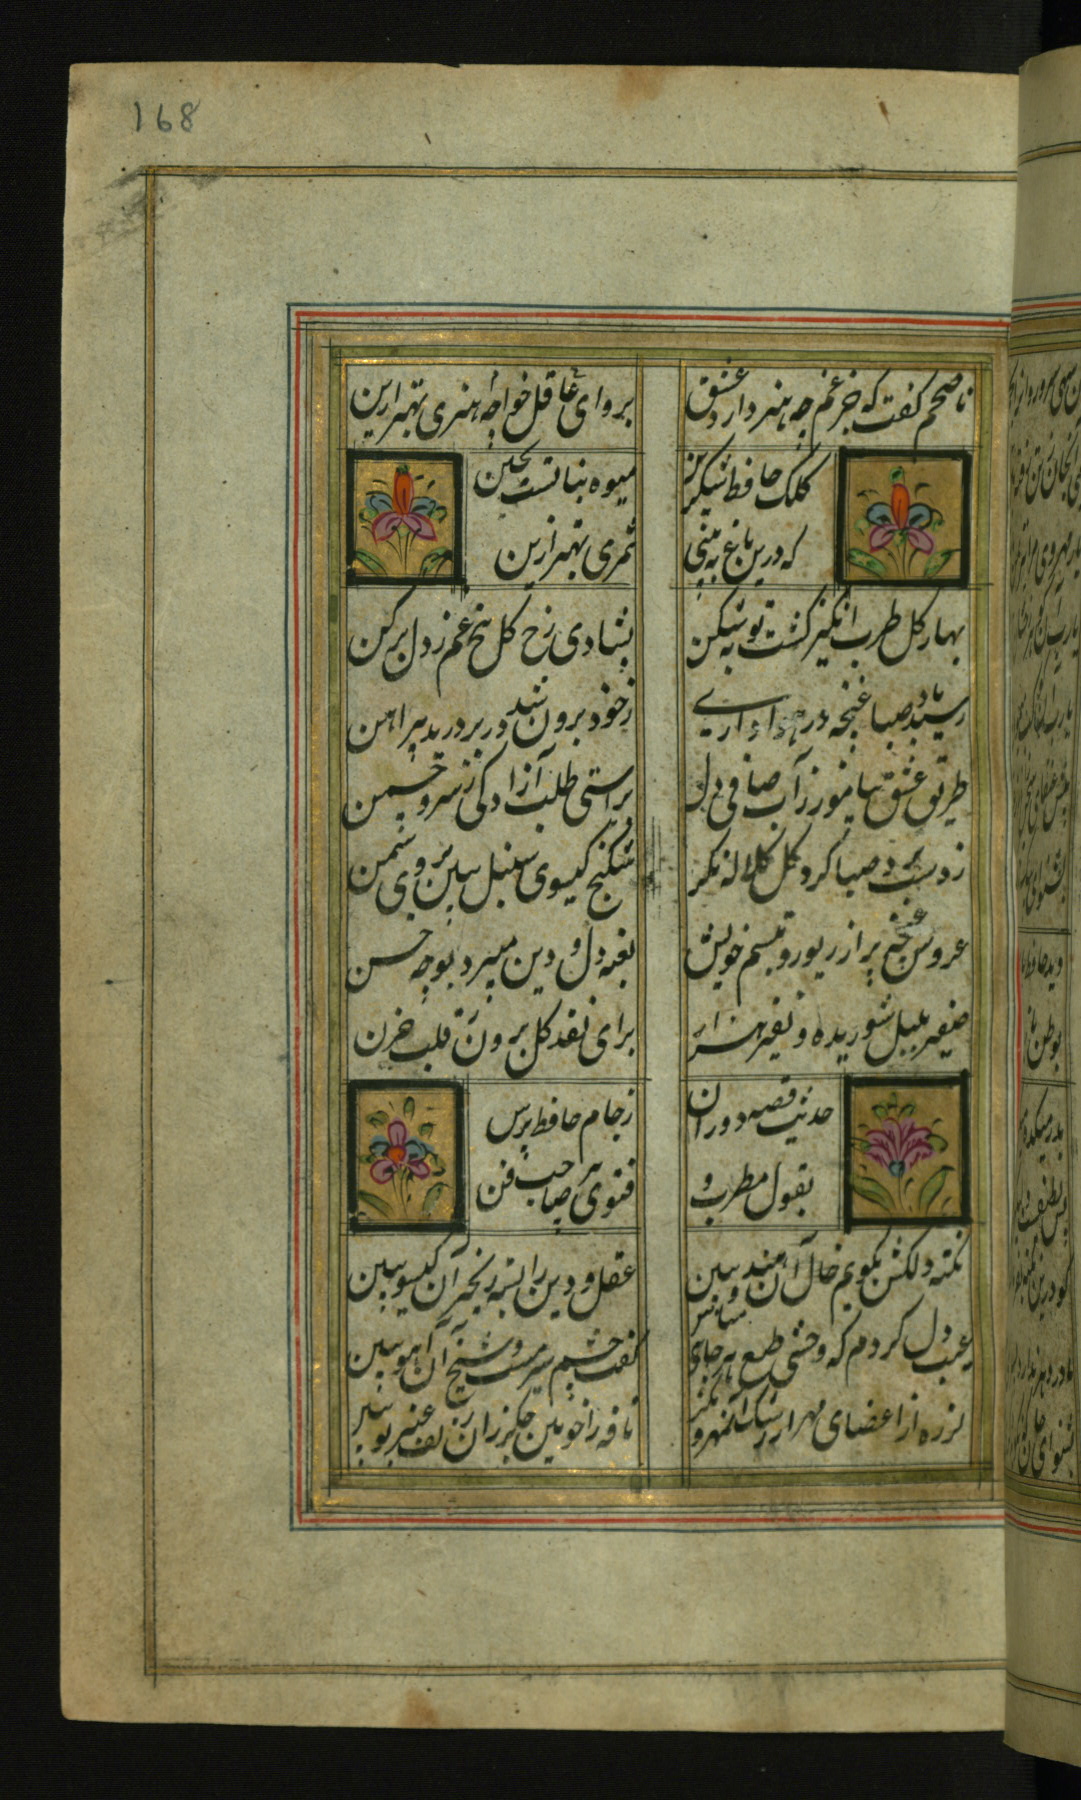 168
ناصحم گفت که جز غم چه هنر دارد عشق
برو ای عاقل خواجه هنری بهتر ازین
کلک حافظ شکرین
میوه نباتست بچین
که درین باغ نه بینی
ثمری بهتر ازین
بهار گل طرب انگیز گشت توبه شکن
بشادی رخ گل بیخ غم ز دل برکن
رسید باد صبا غنچه در هواداری
ز خود برون شد در بر درید پیراهن
طریق عشق بیاموز ز آب صافی دل
براستی طلب آزادگی ز سرو چمن
ز دست برد صبا گرد گل کلاله نگر
شکنج گیسوی سنبل ببین بروی سمن
عروس غنچه پر از زیور و تبسم خویش
بعینه دل و دین میبرد بوجه حسن
صفیر بلبل شوریده و نفیر هزار
برای نقد گل برون ز قلب حزن
حدیث قصه دوران
ز جام حافظ پرس
بقول مطرب و
فتوی بر صاحب فن
نکته دلکش بگویم خال آن هندو ببین
عقل و دین را بسته زنجیر آن گیسو ببین
عیب دل کردم که وحشی طبع هر جای مباش
گفت چشم سرمست و شیخ آن آهو ببین
لرزه از اعضای مهر از رشک آن مهرو نگر
نافه را خونین جگر زان زلف عنبر بو ببین